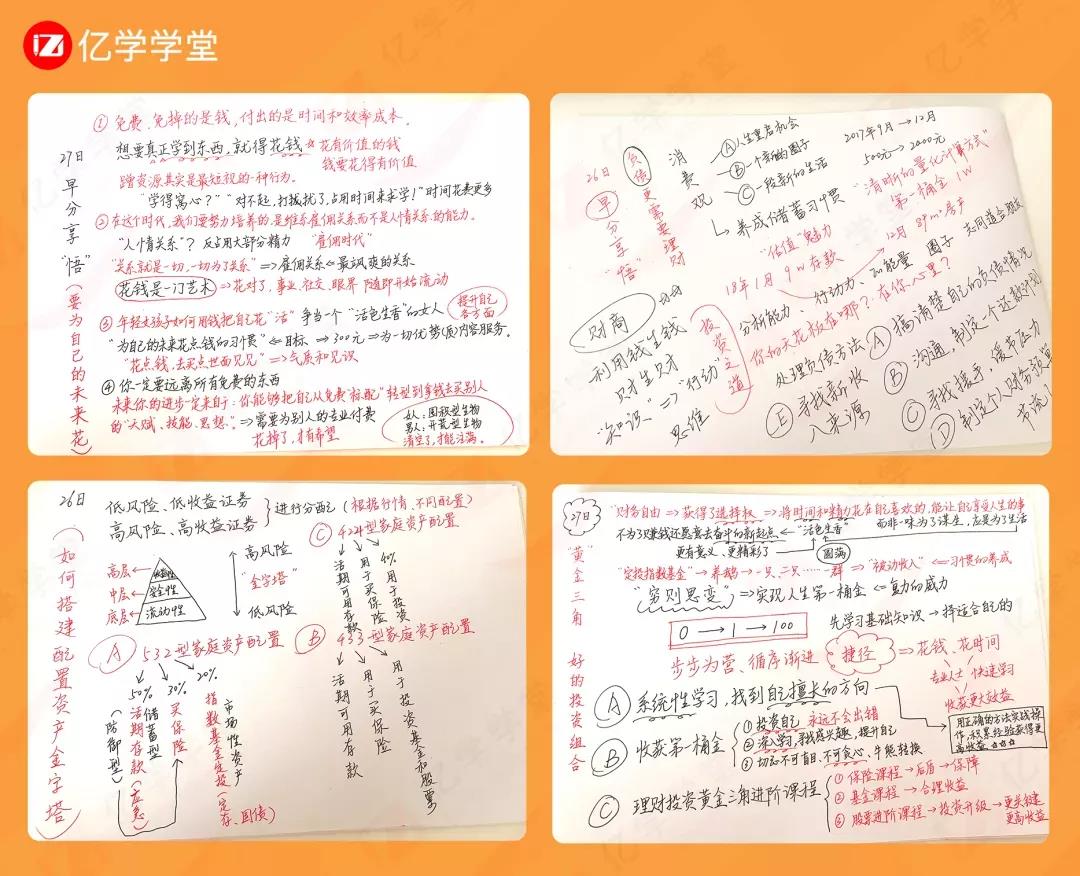 亿学学堂
27日 早分享"悟"(要为自己的未来花)
① 免费、免掉的是钱,付出的是时间和效率成本。
想要真正学到东西,就得花钱 花有价值的钱
钱要花得有价值
蹭资源其实是最短视的一种行为。
"学得窝心?" "对不起,打扰了,占用时间来求学!"时间花费更多
② 在这个时代,我们要努力培养的是维系雇佣关系而不是人情关系的能力。
"人情关系"? 反占用大部分精力 "雇佣时代"
"关系就是一切,一切为了关系" ⇒雇佣关系⇐最飒爽的关系
花钱是一门艺术 ⇒花对了,事业、社交、眼界 随即开始流动
③ 年轻女孩子如何用钱把自己花"活" 争当一个"活色生香"的女人
提升自己各方面
"为自己的未来花点钱的习惯" ⇐目标 ⇒300元⇒为一切优势(质)内容服务。
"花点钱,去买点世面见见" ⇒气质和见识
④ 你一定要远离所有免费的东西
未来你的进步一定来自于:你能够把自己从免费"标配"转型到拿钱去买别人
的"天赋、技能、思想"。⇒需要为别人的专业付费
花掉了,才有希望
女人:囤积型生物
男人:开荒型生物
清空了,才能注满。
26日 早分享"悟"
负债更需要理财
消费观
Ⓐ 人生重启机会
Ⓑ 一个新的圈子
Ⓒ 一段新的生活
↳ 养成储蓄习惯
2017年9月 → 12月
500元 → 2000元
"清晰的量化计算方式"
第一桶金 1W
"估值"魅力
18年1月 9W存款
12月 89㎡房产
财商
利用钱生钱
只才生只才
"知识" ⇒ "行动"
思维
投资之道
分析能力、行动力、和能量 圈子 志同道合朋友
你的天花板在哪?在你心里?
处理负债方法
Ⓐ 搞清楚自己的负债情况
Ⓑ 沟通,制定个还款计划
Ⓒ 寻找援手,缓解压力
Ⓓ 制定个人财务预算
节流
Ⓔ 寻找新收
入来源
26日
(如何搭建配置资产金字塔)
低风险、低收益证券
高风险、高收益证券
进行分配(根据行情、不同配置)
高层← 收益性
中层← 安全性
底层← 流动性
高风险
"金字塔"
低风险
Ⓐ 532型家庭资产配置
50% 储蓄型 活期存款(应急)
(防御型)
30% 买保险
20% 指数基金定投(定存、国债)
市场性资产
Ⓑ 433型家庭资产配置
活期可用存款
用于买保险
用于投资基金和股票
Ⓒ 424型家庭资产配置
活期可用存款
用于买保险
40%用于投资
27日
"黄金三角" 好的投资组合
"财务自由 ⇒ 获得了选择权 ⇒ 将时间和精力花在自己喜欢的,能让自己享受人生的事
而非一味为了谋生,应是为了生活
不为了赚钱还愿意去奋斗的新起点 ⇐ "活色生香"
更有意义、更精彩了
圆满
"定投指数基金" → 养鹅 → 一只、二只……群 ⇒ "被动收入" ⇐ 习惯的养成
"穷则思变" ⇒实现人生第一桶金 ⇐ 复利的威力
0 → 1 → 100
先学习基础知识 → 择适合自己的
步步为营、循序渐进
捷径 ⇒ 花钱、花时间
专业人士 快速学习
收获更大效益
Ⓐ 系统性学习,找到自己擅长的方向
用正确的方法实践操
作,积累经验获得更
高收益
Ⓑ 收获第一桶金
① 投资自己 永远不会出错
② 深入学习,寻找感兴趣、提升自己
③ 切忌不可盲目、不可贪心、牛熊转换
Ⓒ 理财投资黄金三角进阶课程
① 保险课程 → 后盾 → 保障
② 基金课程 → 合理收益
③ 股票进阶课程 → 投资升级 → 更关键
更高收益